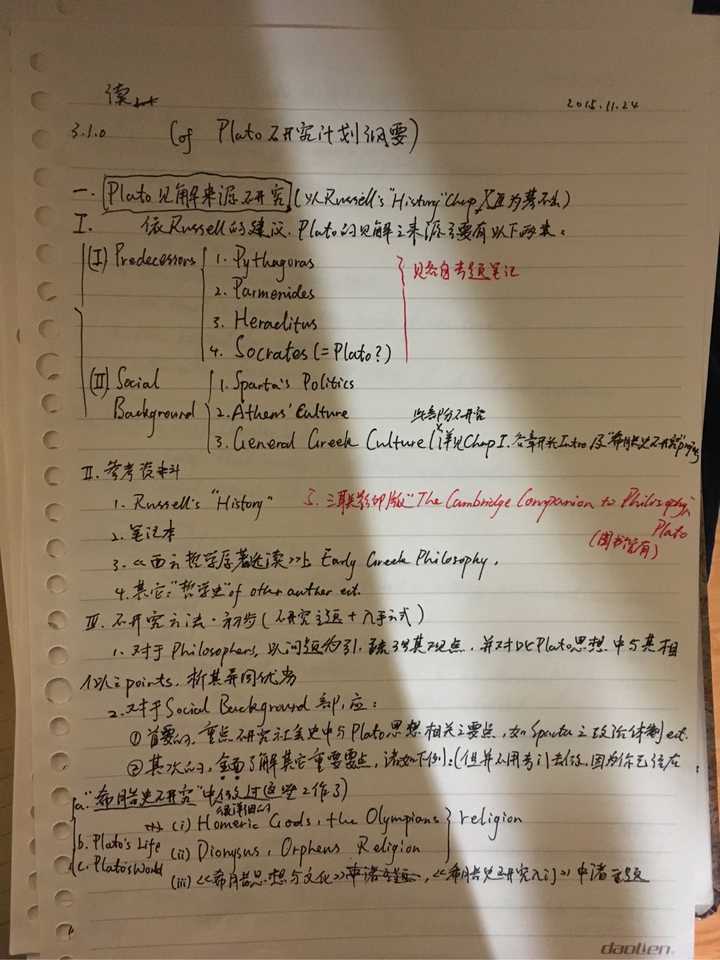 读
2015.11.24
3.1.0 (of Plato研究计划纲要)
一. Plato见解来源研究 (以Russell's "History" Chap 为基本)
I. 依Russell的建议, Plato的见解之来源主要有以下两类:
(I) Predecessors
1. Pythagoras
2. Parmenides
3. Heraclitus
4. Socrates (= Plato?)
见各自专题笔记
(II) Social Background
1. Sparta's Politics
2. Athens' Culture
3. General Greek Culture (详见Chap I. 各章开头Intro 及"希腊史研究"
此部分不研究
II. 参考资料
1. Russell's "History"
2. 笔记本
3. 《西方哲学原著选读》上 Early Greek Philosophy.
4. 其它"哲学史" of other author ect.
5. 三联影印版 "The Cambridge Companion to Philosophy"
Plato
(图书馆有)
III. 研究方法·初步 (研究主题 + 入手方式)
1. 对于Philosophers, 以问题为引, 疏理其观点, 并对比Plato思想中与其相
似之points, 析其异同优劣
2. 对于Social Background 部, 应:
① 首要的, 重点研究社会史中与Plato思想相关之要点, 如Sparta之政治体制 ect.
② 其次的, 全面了解其它重要要点, 诸如下例: (但并不用专门去做, 因为你已经在
a. "希腊史研究"中做过这些工作了)
很详细的
(i) Homeric Gods, the Olympians
religion
b. Plato's Life
(ii) Dionysus, Orpheus Religion
c. Plato's World
(iii) 《希腊思想与文化》中诸主题, 《希腊史研究入门》中诸主题
daolien.